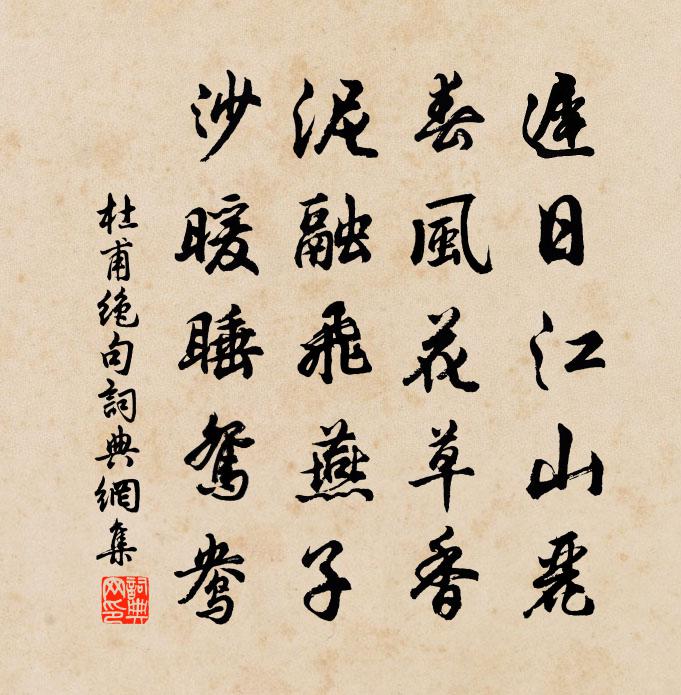 遲日江山麗
春風花草香
泥融飛燕子
沙暖睡鴛鴦
杜甫絶句詞典網集
詞典网印